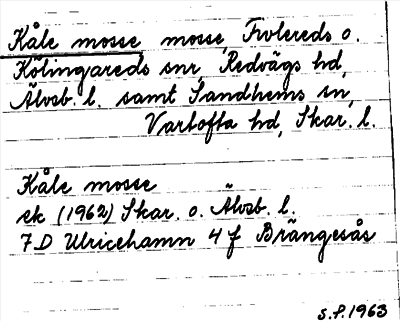 Kåle mosse mosse, Frolereds o.
Kölingareds snr, Redvägs hd,
Älvsb. l. samt Sandhems sn,
Vartofta hd, Skar. l.
Kåle mosse
ek (1962) Skar. o. Älvsb. l.
7D Ulricehamn 4 f Brängesås
S.P. 1963